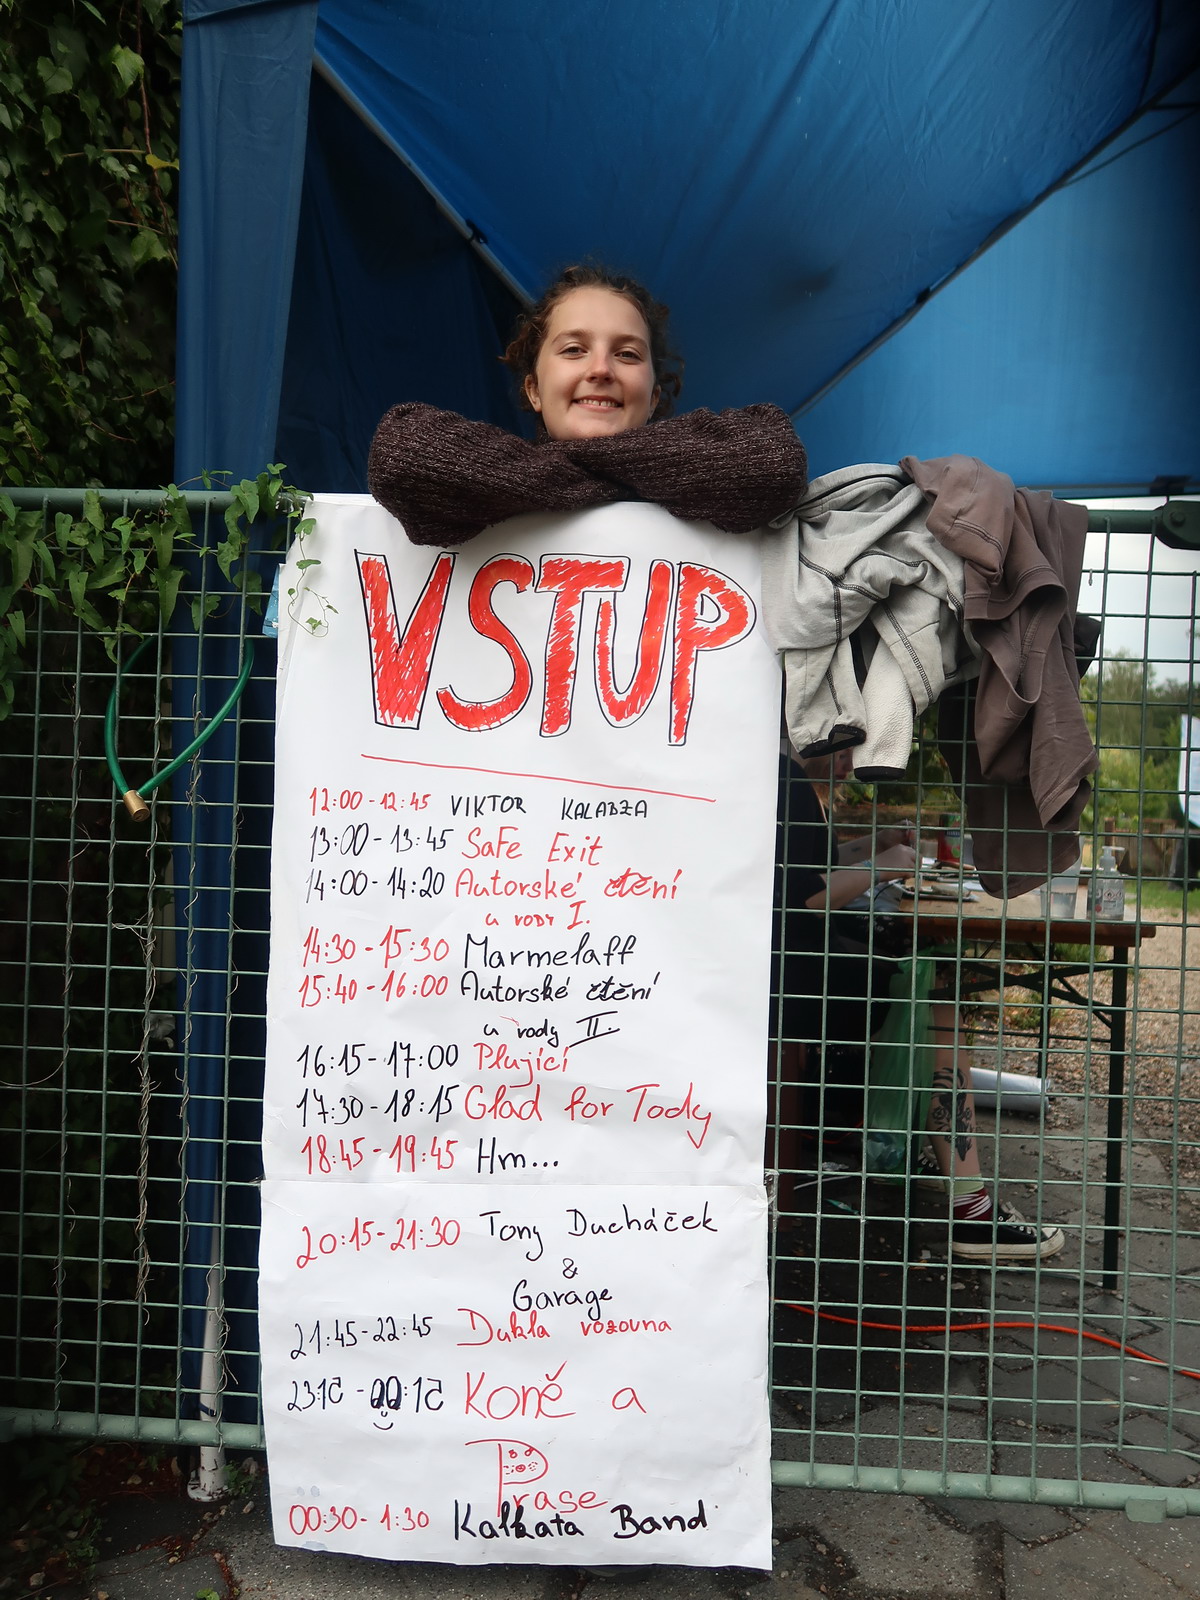 VSTUP
12:00-12:45 VIKTOR KALABZA
13:00-13:45 Safe Exit
14:00-14:20 Autorské čtení
u vody I.
14:30-15:30 Marmelaff
15:40-16:00 Autorské čtení
u vody II.
16:15-17:00 Plující
17:30-18:15 Glad for Tody
18:45-19:45 Hm...
20:15-21:30 Tony Ducháček
&
Garage
21:45-22:45 Dukla vozovna
23:15-00:15 Koně a
Prase
00:30-1:30 Kalkata Band